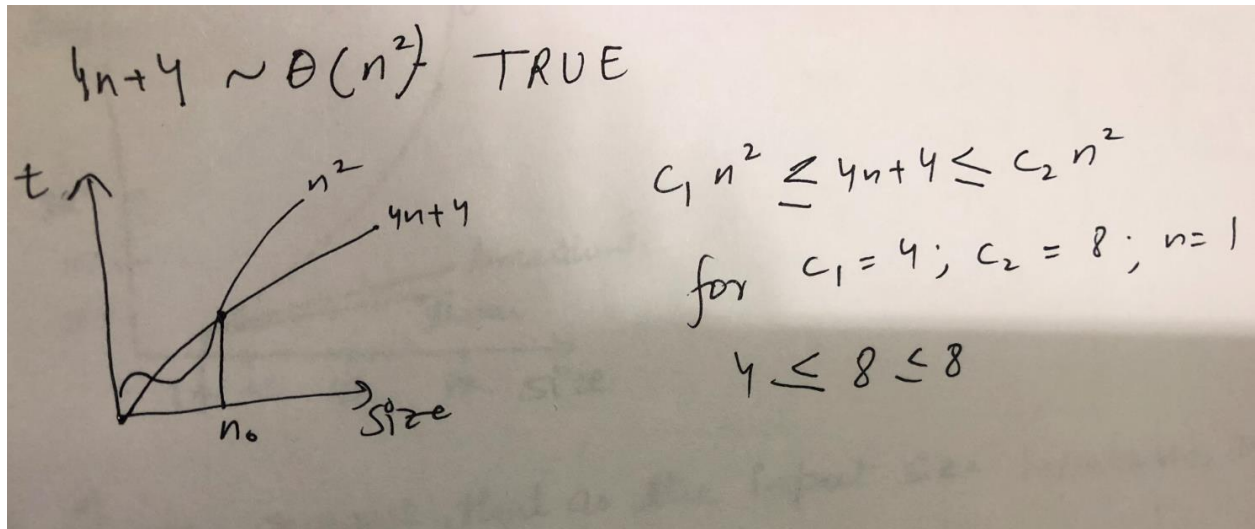 4n+4 ~ θ(n²) TRUE
t
n²
4n+4
n₀
Size
C₁ n² ≤ 4n+4 ≤ C₂ n²
for C₁ = 4; C₂ = 8; n=1
4 ≤ 8 ≤ 8